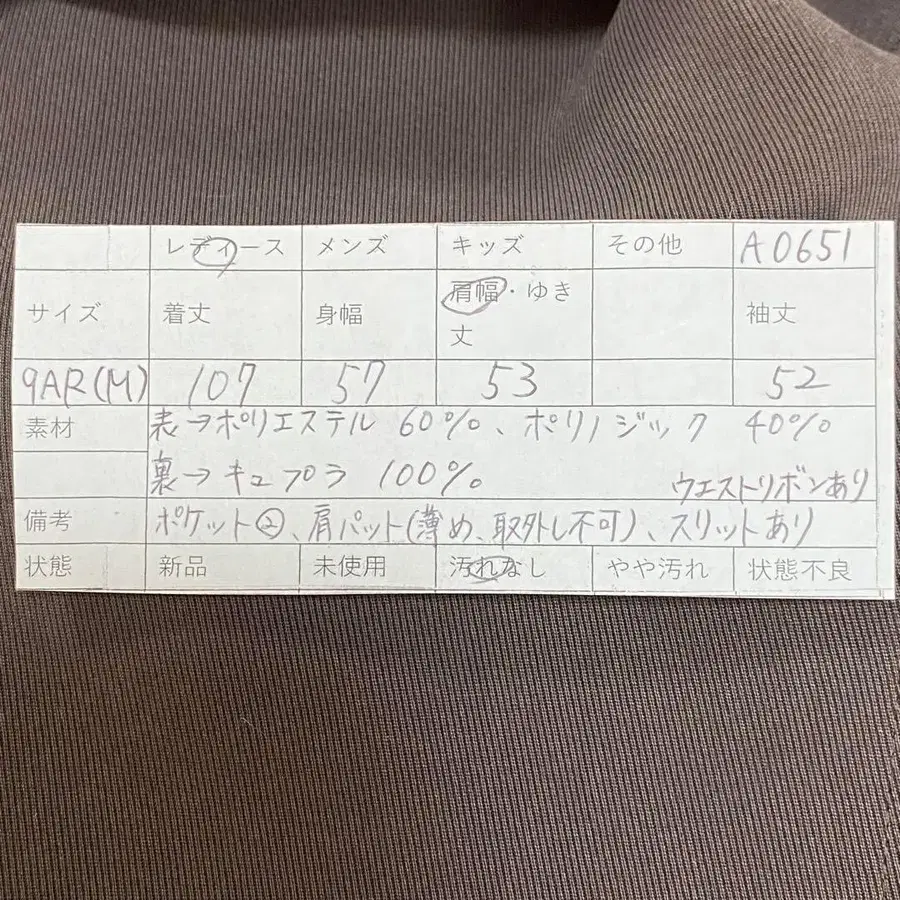 レディース メンズ キッズ その他 A0651
サイズ 着丈 身幅 肩幅・ゆき丈 袖丈
9AR(M) 107 57 53 52
素材 表→ポリエステル 60%、ポリノジック 40%
裏→キュプラ 100% ウエストリボンあり
備考 ポケット②、肩パット(薄め、取外し不可)、スリットあり
状態 新品 未使用 汚れなし やや汚れ 状態不良